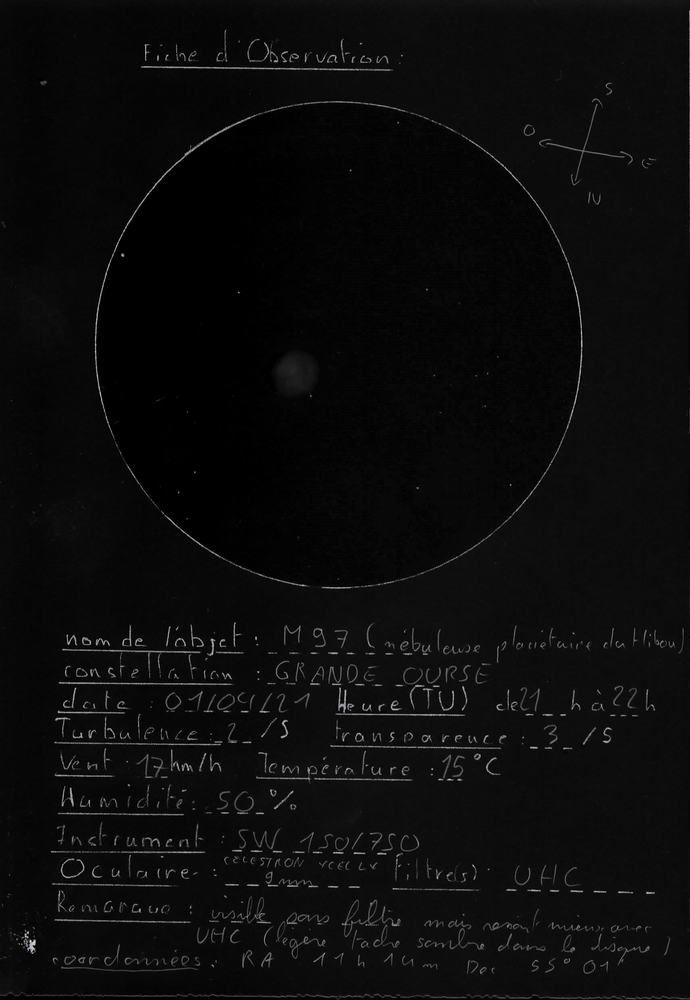 Fiche d'Observation:
S
O
E
N
nom de l'objet : M97 (nébuleuse planétaire du Hibou)
constellation : GRANDE OURSE
date : 01/04/21 Heure (TU) de 21 h à 22 h
Turbulence : 2 /5 transparence : 3 /5
Vent : 17 km/h Température : 15°C
Humidité : 50 %
Instrument : SW 150/750
Oculaire : CELESTRON XCEL LX 9mm Filtre(s) : UHC
Remarque : visible sans filtre mais ressort mieux avec
UHC (légère tache sombre dans le disque)
coordonnées : RA 11h 14m Dec 55° 01'